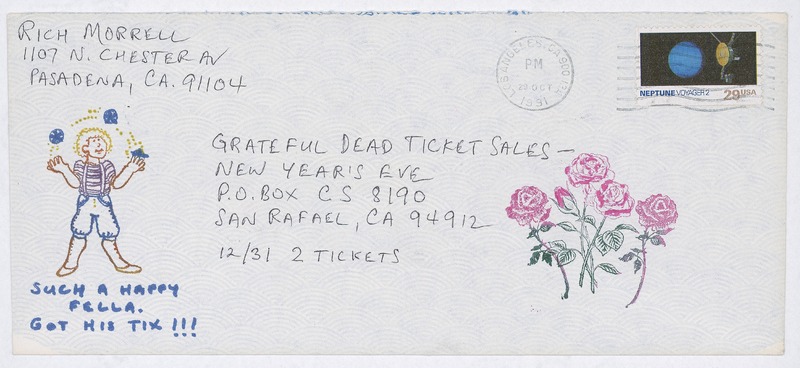 RICH MORRELL
1107 N. CHESTER AV
PASADENA, CA. 91104
LOS ANGELES, CA 900
PM
29 OCT
1991
NEPTUNE VOYAGER 2
29 USA
GRATEFUL DEAD TICKET SALES—
NEW YEAR'S EVE
P.O. BOX CS 8190
SAN RAFAEL, CA 94912
12/31 2 TICKETS
SUCH A HAPPY
FELLA.
GOT HIS TIX !!!